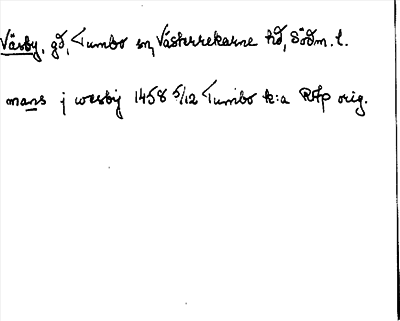 Väsby, gd, Tumbo sn, Västerrekarne hd, Södm. l.
mans j wæsby 1458 5/12 Tumbo k:a RAp orig.